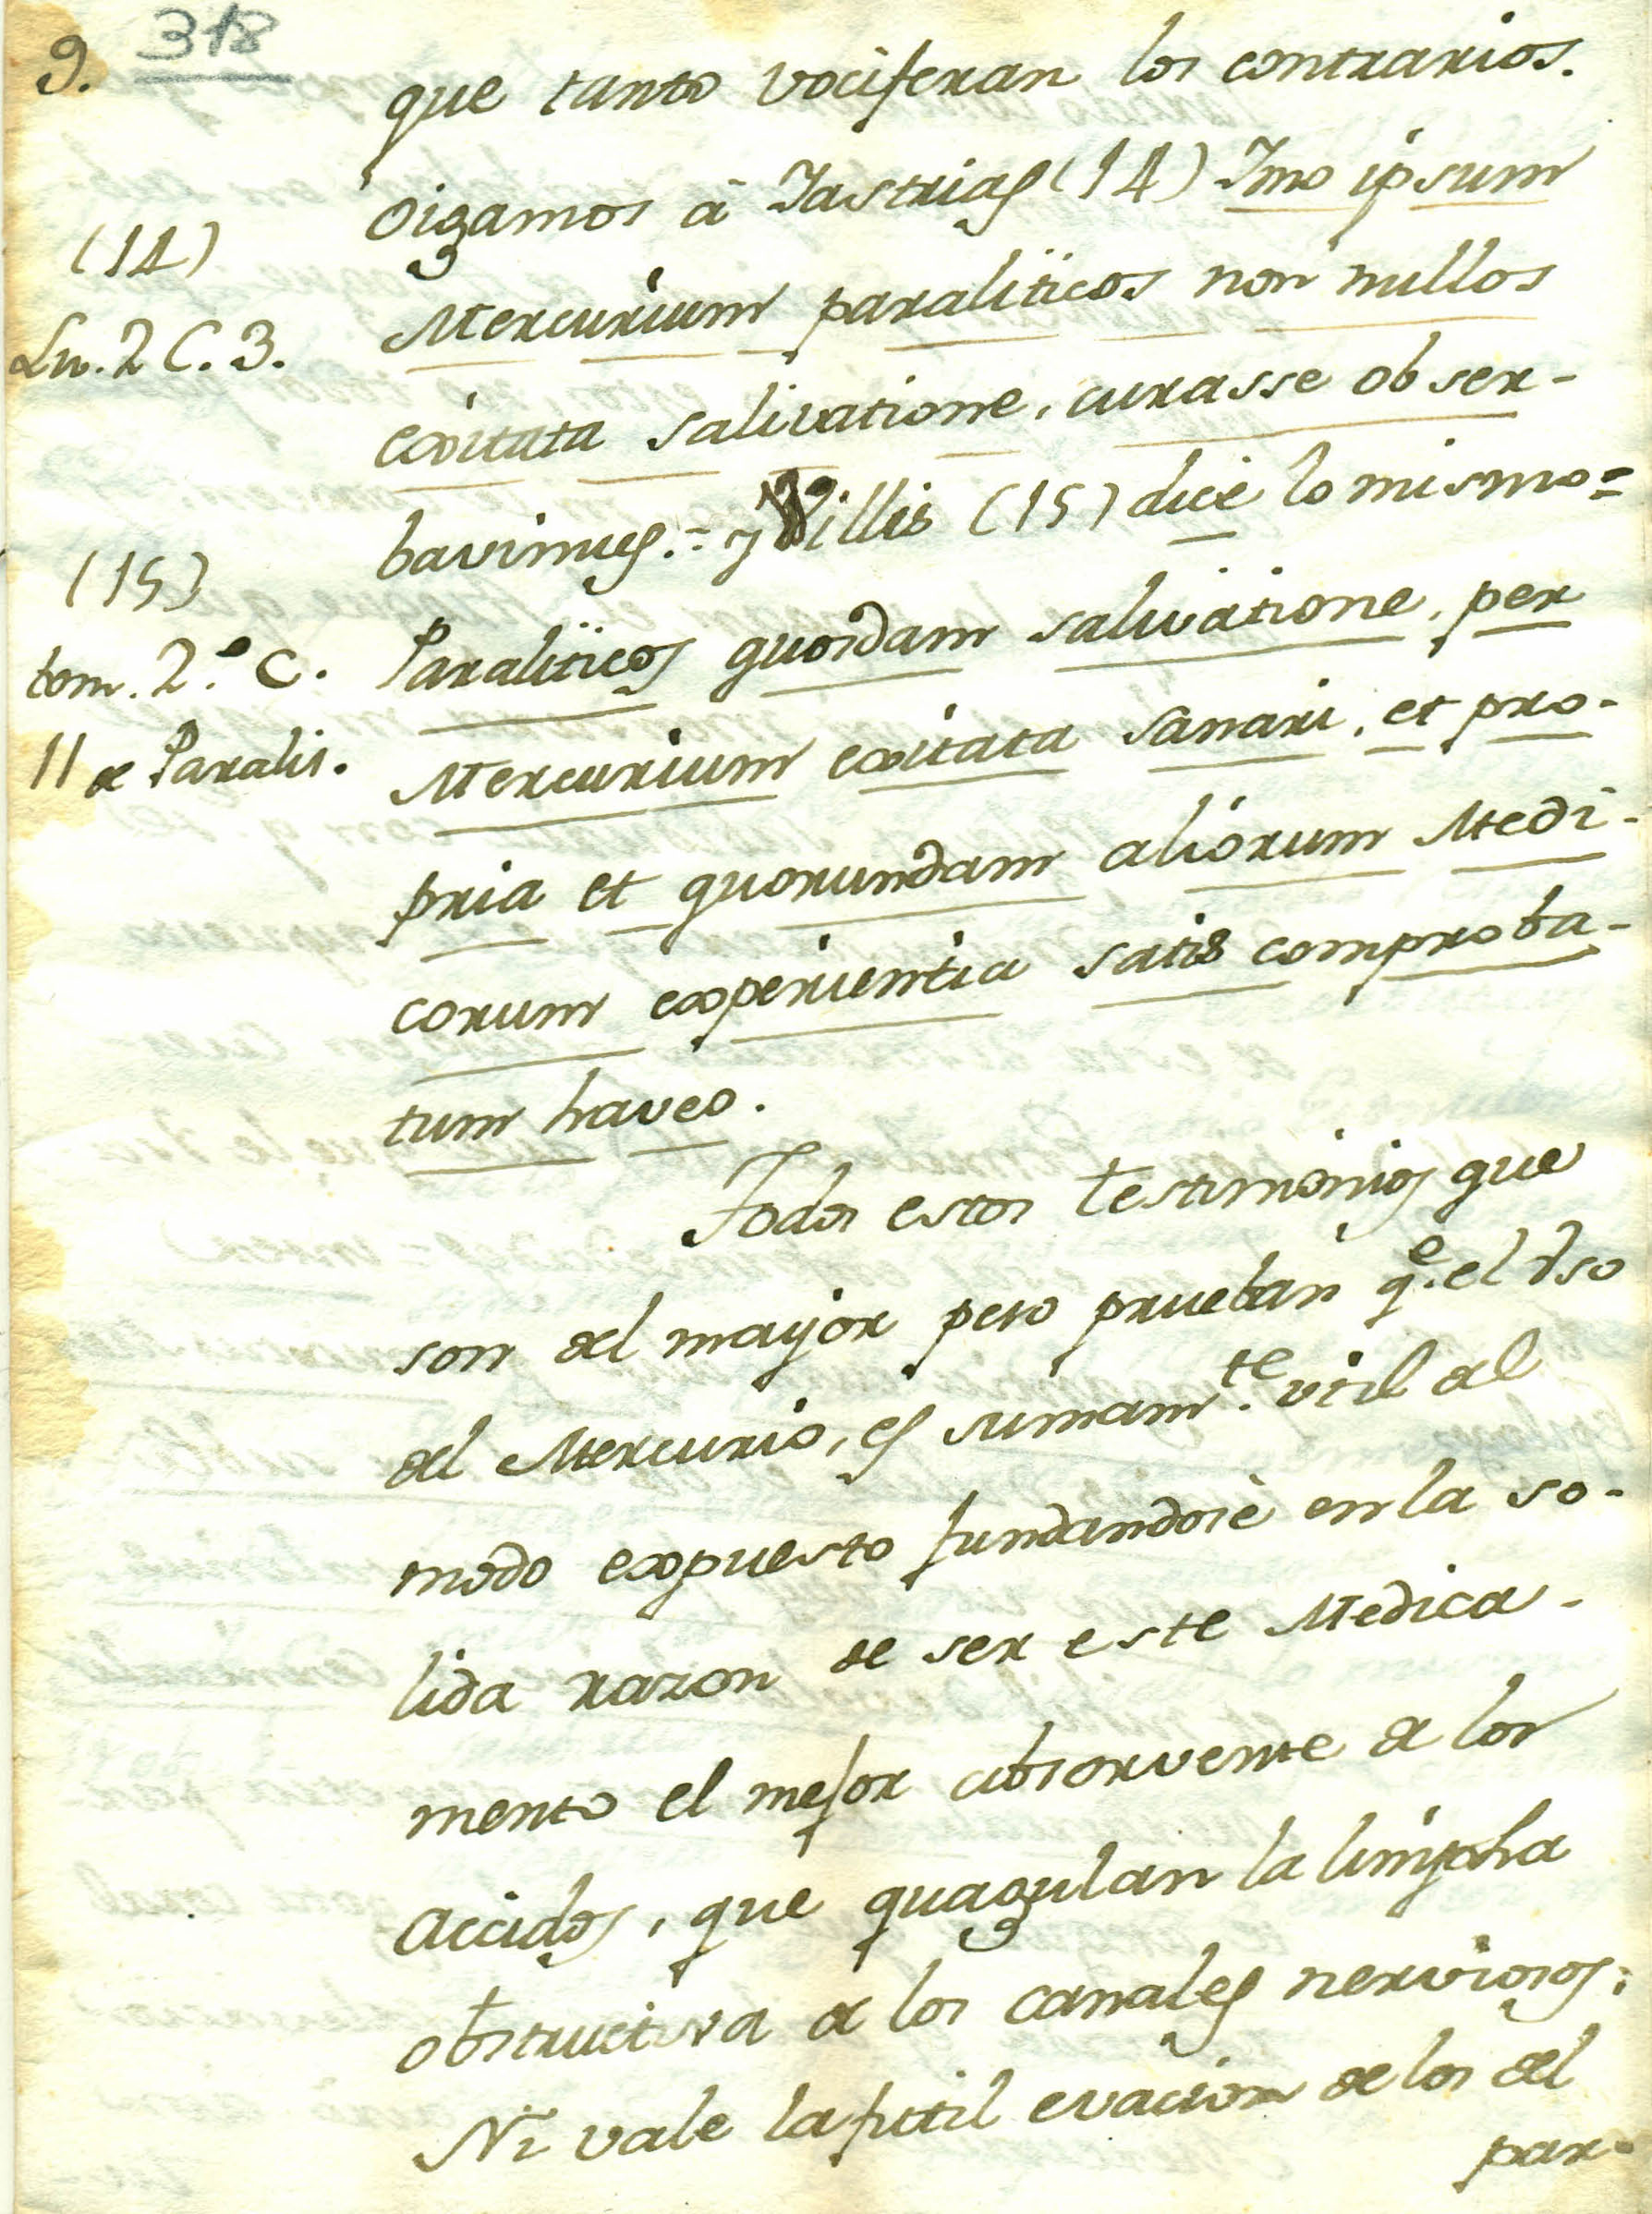 9. 318
que tanto vociferan los contrarios.
Oigamos â Jastrias (14) Imo ipsum
(14)
Mercurium paraliticos non nullos
Lu. 2 C. 3.
exitata salivatione, curasse obser-
bavimus.= y Villis (15) dice lo mismo=
(15)
Paraliticos quosdam salivatione, per
tom. 2.º C.
Mercurium exitata sanari, et pro-
11 de Paralis.
pria et quorundam aliorum Medi-
corum experientia satis comproba-
tum haveo.
Todos estos testimonios que
son del mayor peso prueban q.e el Uso
del Mercurio, es sumam.te util del
modo expuesto fundandose en la so-
lida razon de ser este Medica-
mento el mejor absorvente de los
Accidos, que quagulan la limpha
obstructiva de los canales nerviosos;
Ni vale la futil evacion de los del
par-